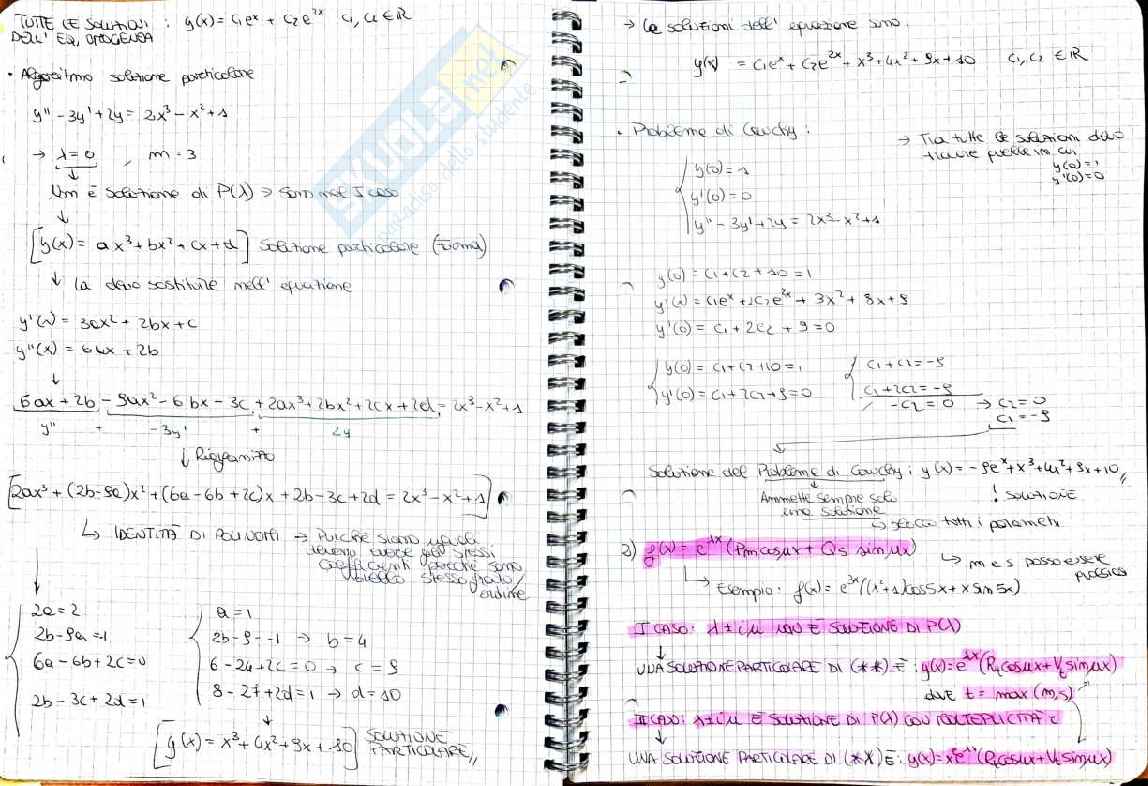 TUTTE LE SOLUZIONI : y(x) = c₁eˣ + c₂e²ˣ c₁, c₂ ∈ ℝ
DELL' EQ. OMOGENEA
• Algoritmo soluzione particolare
y'' - 3y' + 2y = 2x³ - x² + 1
→ λ = 0 , m = 3
↓
è soluzione di P(λ) → sono nel I caso
↓
[y(x) = ax³ + bx² + cx + d] soluzione particolare (forma)
↓ la devo sostituire nell' equazione
y'(x) = 3ax² + 2bx + c
y''(x) = 6ax + 2b
↓
6ax + 2b - 9ax² - 6bx - 3c + 2ax³ + 2bx² + 2cx + 2d = 2x³ - x² + 1
y'' + -3y' + 2y
↓
[2ax³ + (2b-9a)x² + (6a-6b+2c)x + 2b-3c+2d = 2x³ - x² + 1]
↳ IDENTITÀ DI POLINOMI → Purché siano uguali
devono avere gli stessi
coefficienti purché siano
stesso grado/
ordine
2a = 2
2b - 9a = -1
6a - 6b + 2c = 0
2b - 3c + 2d = 1
a = 1
2b - 9 = -1 → b = 4
6 - 24 + 2c = 0 → c = 9
8 - 27 + 2d = 1 → d = 10
↓
[y(x) = x³ + 4x² + 9x + 10] SOLUZIONE
PARTICOLARE
→ Le soluzioni dell' equazione sono:
y(x) = c₁eˣ + c₂e²ˣ + x³ + 4x² + 9x + 10 c₁, c₂ ∈ ℝ
• Problema di Cauchy :
→ Tra tutte le soluzioni devo
trovare quelle in cui
y(0) = 1
y'(0) = 0
y(0) = 1
y'(0) = 0
y'' - 3y' + 2y = 2x³ - x² + 1
y(0) = c₁ + c₂ + 10 = 1
y'(x) = c₁eˣ + 2c₂e²ˣ + 3x² + 8x + 9
y'(0) = c₁ + 2c₂ + 9 = 0
y(0) = c₁ + c₂ + 10 = 1
y'(0) = c₁ + 2c₂ + 9 = 0
c₁ + c₂ = -9
c₁ + 2c₂ = -9
-c₂ = 0 → c₂ = 0
c₁ = -9
Soluzione del Problema di Cauchy : y(x) = -9eˣ + x³ + 4x² + 9x + 10
↓
Ammette sempre solo
una soluzione
! soluzione
↳ tutti i parametri
2) f(x) = e^λx (Pm cosμx + Qs sinμx)
↳ m e s possono essere
↳ Esempio: f(x) = e³ˣ((x²+1)cos5x + x sin5x)
I CASO: λ ± iμ NON È SOLUZIONE DI P(λ)
↓
UNA SOLUZIONE PARTICOLARE DI (**) È : y(x) = e^λx (Rt cosμx + Vt sinμx)
dove t = max (m,s)
II CASO: λ ± iμ È SOLUZIONE DI P(λ) CON MOLTEPLICITÀ r
↓
UNA SOLUZIONE PARTICOLARE DI (**) È : y(x) = xʳe^λx (Rt cosμx + Vt sinμx)
SKUOLA.net